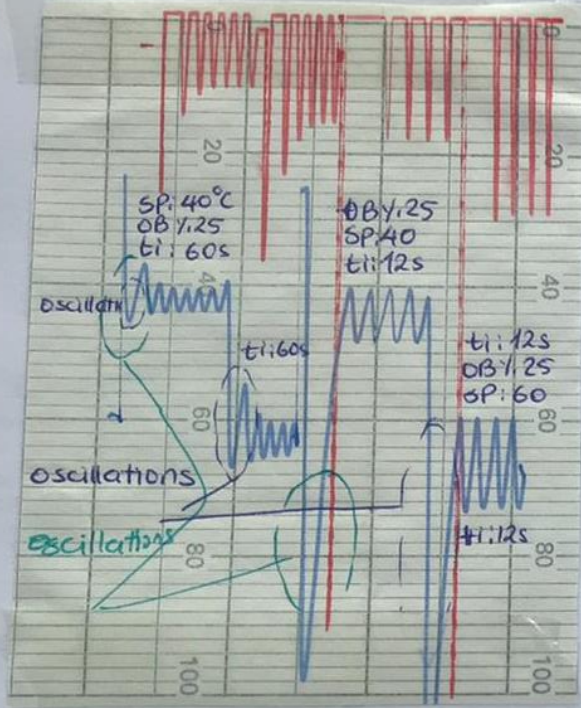 0
0
20
20
SP: 40°C
OB %.25
ti: 60s
OB %.25
SP: 40
ti: 12s
40
40
oscillatn
ti: 60s
ti: 12s
OB %.25
SP: 60
60
60
oscillations
oscillations
ti: 12s
80
80
100
100